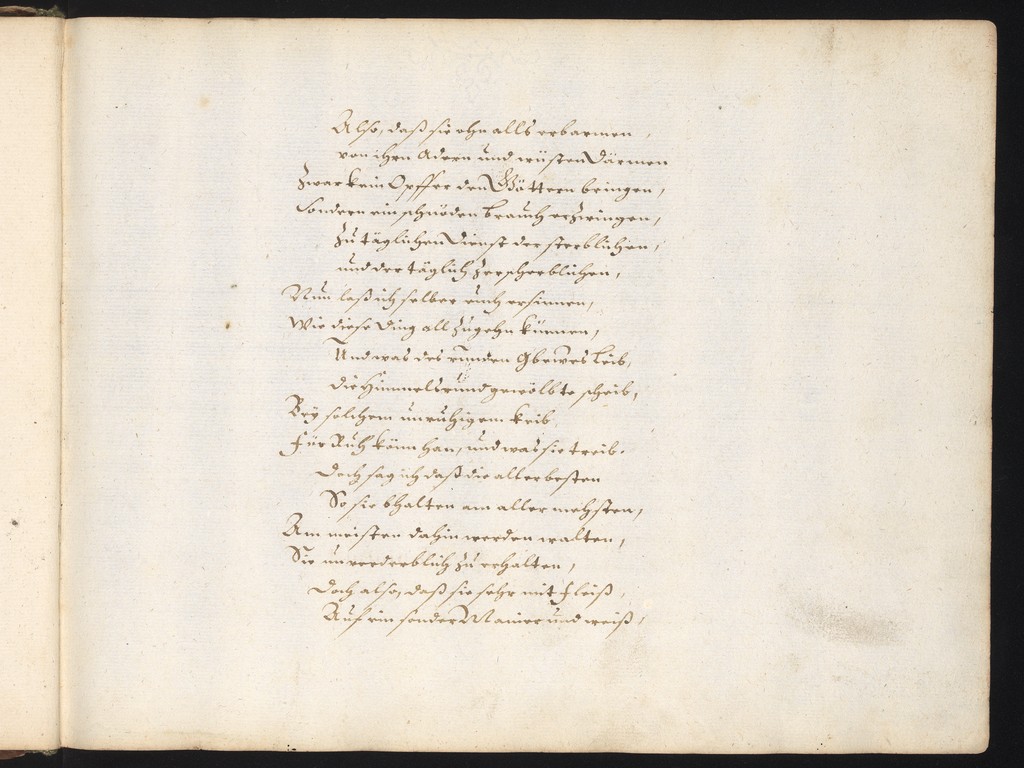 Also, daß sie ohn alls erbarmen,
von ihrn Adern und wüsten Därmen
Zwar kein Opffer den Göttern bringen,
Sondern ein schnöden brauch erzwingen,
Zu täglichen Dienst der sterblichen,
und der täglich zerscherblichen,
Nun laß ich selber euch ersinnen,
Wie diese Ding all zugehn künnen,
Und was des runden Leib,
Die Himmelsrund gewölbte scheib,
Bey solchem unruhigem keib
Für Ruh könn han, und was sie treib.
Doch sag ich daß die allerbesten
So sie bhalten am aller mehsten,
Am meisten dahin werden walten,
Sie unverderblich zu erhalten,
Doch also, daß sie sehr mit Fleiß,
Auf ein sonder Manier und weiß,